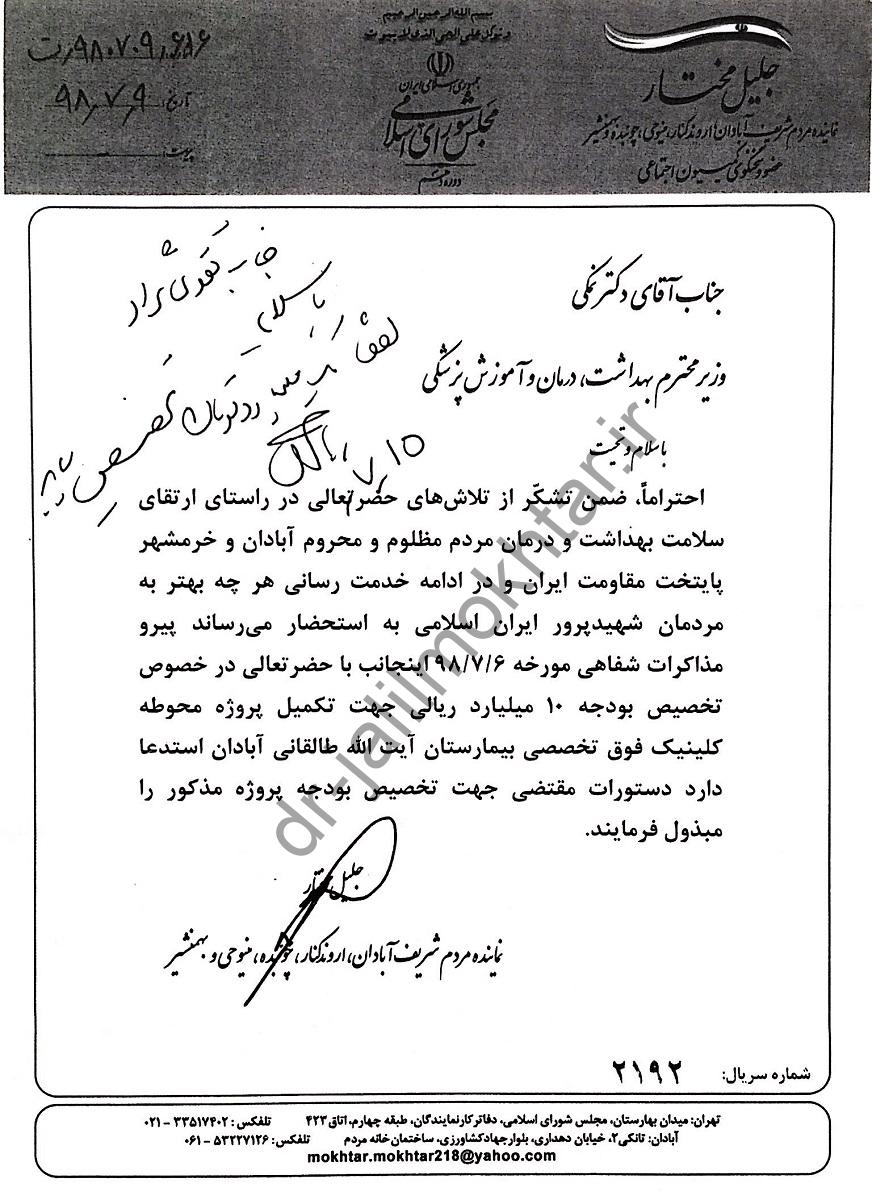 بسم الله الرحمن الرحیم
و توکل علی الحی الذی لا یموت
جمهوری اسلامی ایران
مجلس شورای اسلامی
دوره دهم
جلیل مختار
نماینده مردم شریف آبادان، اروندکنار، مینوحی، چوئبده و بهمنشیر
عضو و سخنگوی کمیسیون اجتماعی
۹۸۰۷۰۹ر۶۸۶رت
تاریخ: ۹۸٫۷٫۹
پیوست:
جناب آقای دکتر نمکی
وزیر محترم بهداشت، درمان و آموزش پزشکی
با سلام و تحیت
جناب
با سلام
تخصیص
۷٫۱۵
احتراماً، ضمن تشکّر از تلاش‌های حضرتعالی در راستای ارتقای
سلامت بهداشت و درمان مردم مظلوم و محروم آبادان و خرمشهر
پایتخت مقاومت ایران و در ادامه خدمت رسانی هر چه بهتر به
مردمان شهیدپرور ایران اسلامی به استحضار می‌رساند پیرو
مذاکرات شفاهی مورخه ۹۸/۷/۶ اینجانب با حضرتعالی در خصوص
تخصیص بودجه ۱۰ میلیارد ریالی جهت تکمیل پروژه محوطه
کلینیک فوق تخصصی بیمارستان آیت الله طالقانی آبادان استدعا
دارد دستورات مقتضی جهت تخصیص بودجه پروژه مذکور را
مبذول فرمایند.
جلیل مختار
نماینده مردم شریف آبادان، اروندکنار، چوئبده، مینوحی و بهمنشیر
شماره سریال: ۲۱۹۲
تهران: میدان بهارستان، مجلس شورای اسلامی، دفاتر کار نمایندگان، طبقه چهارم، اتاق ۴۲۳ تلفکس: ۳۳۵۱۷۴۰۲ - ۰۲۱
آبادان: تانکی۲، خیابان دهداری، بلوار جهاد کشاورزی، ساختمان خانه مردم تلفکس: ۵۳۲۲۷۱۲۶ - ۰۶۱
mokhtar.mokhtar218@yahoo.com
dr-jalilmokhtar.ir